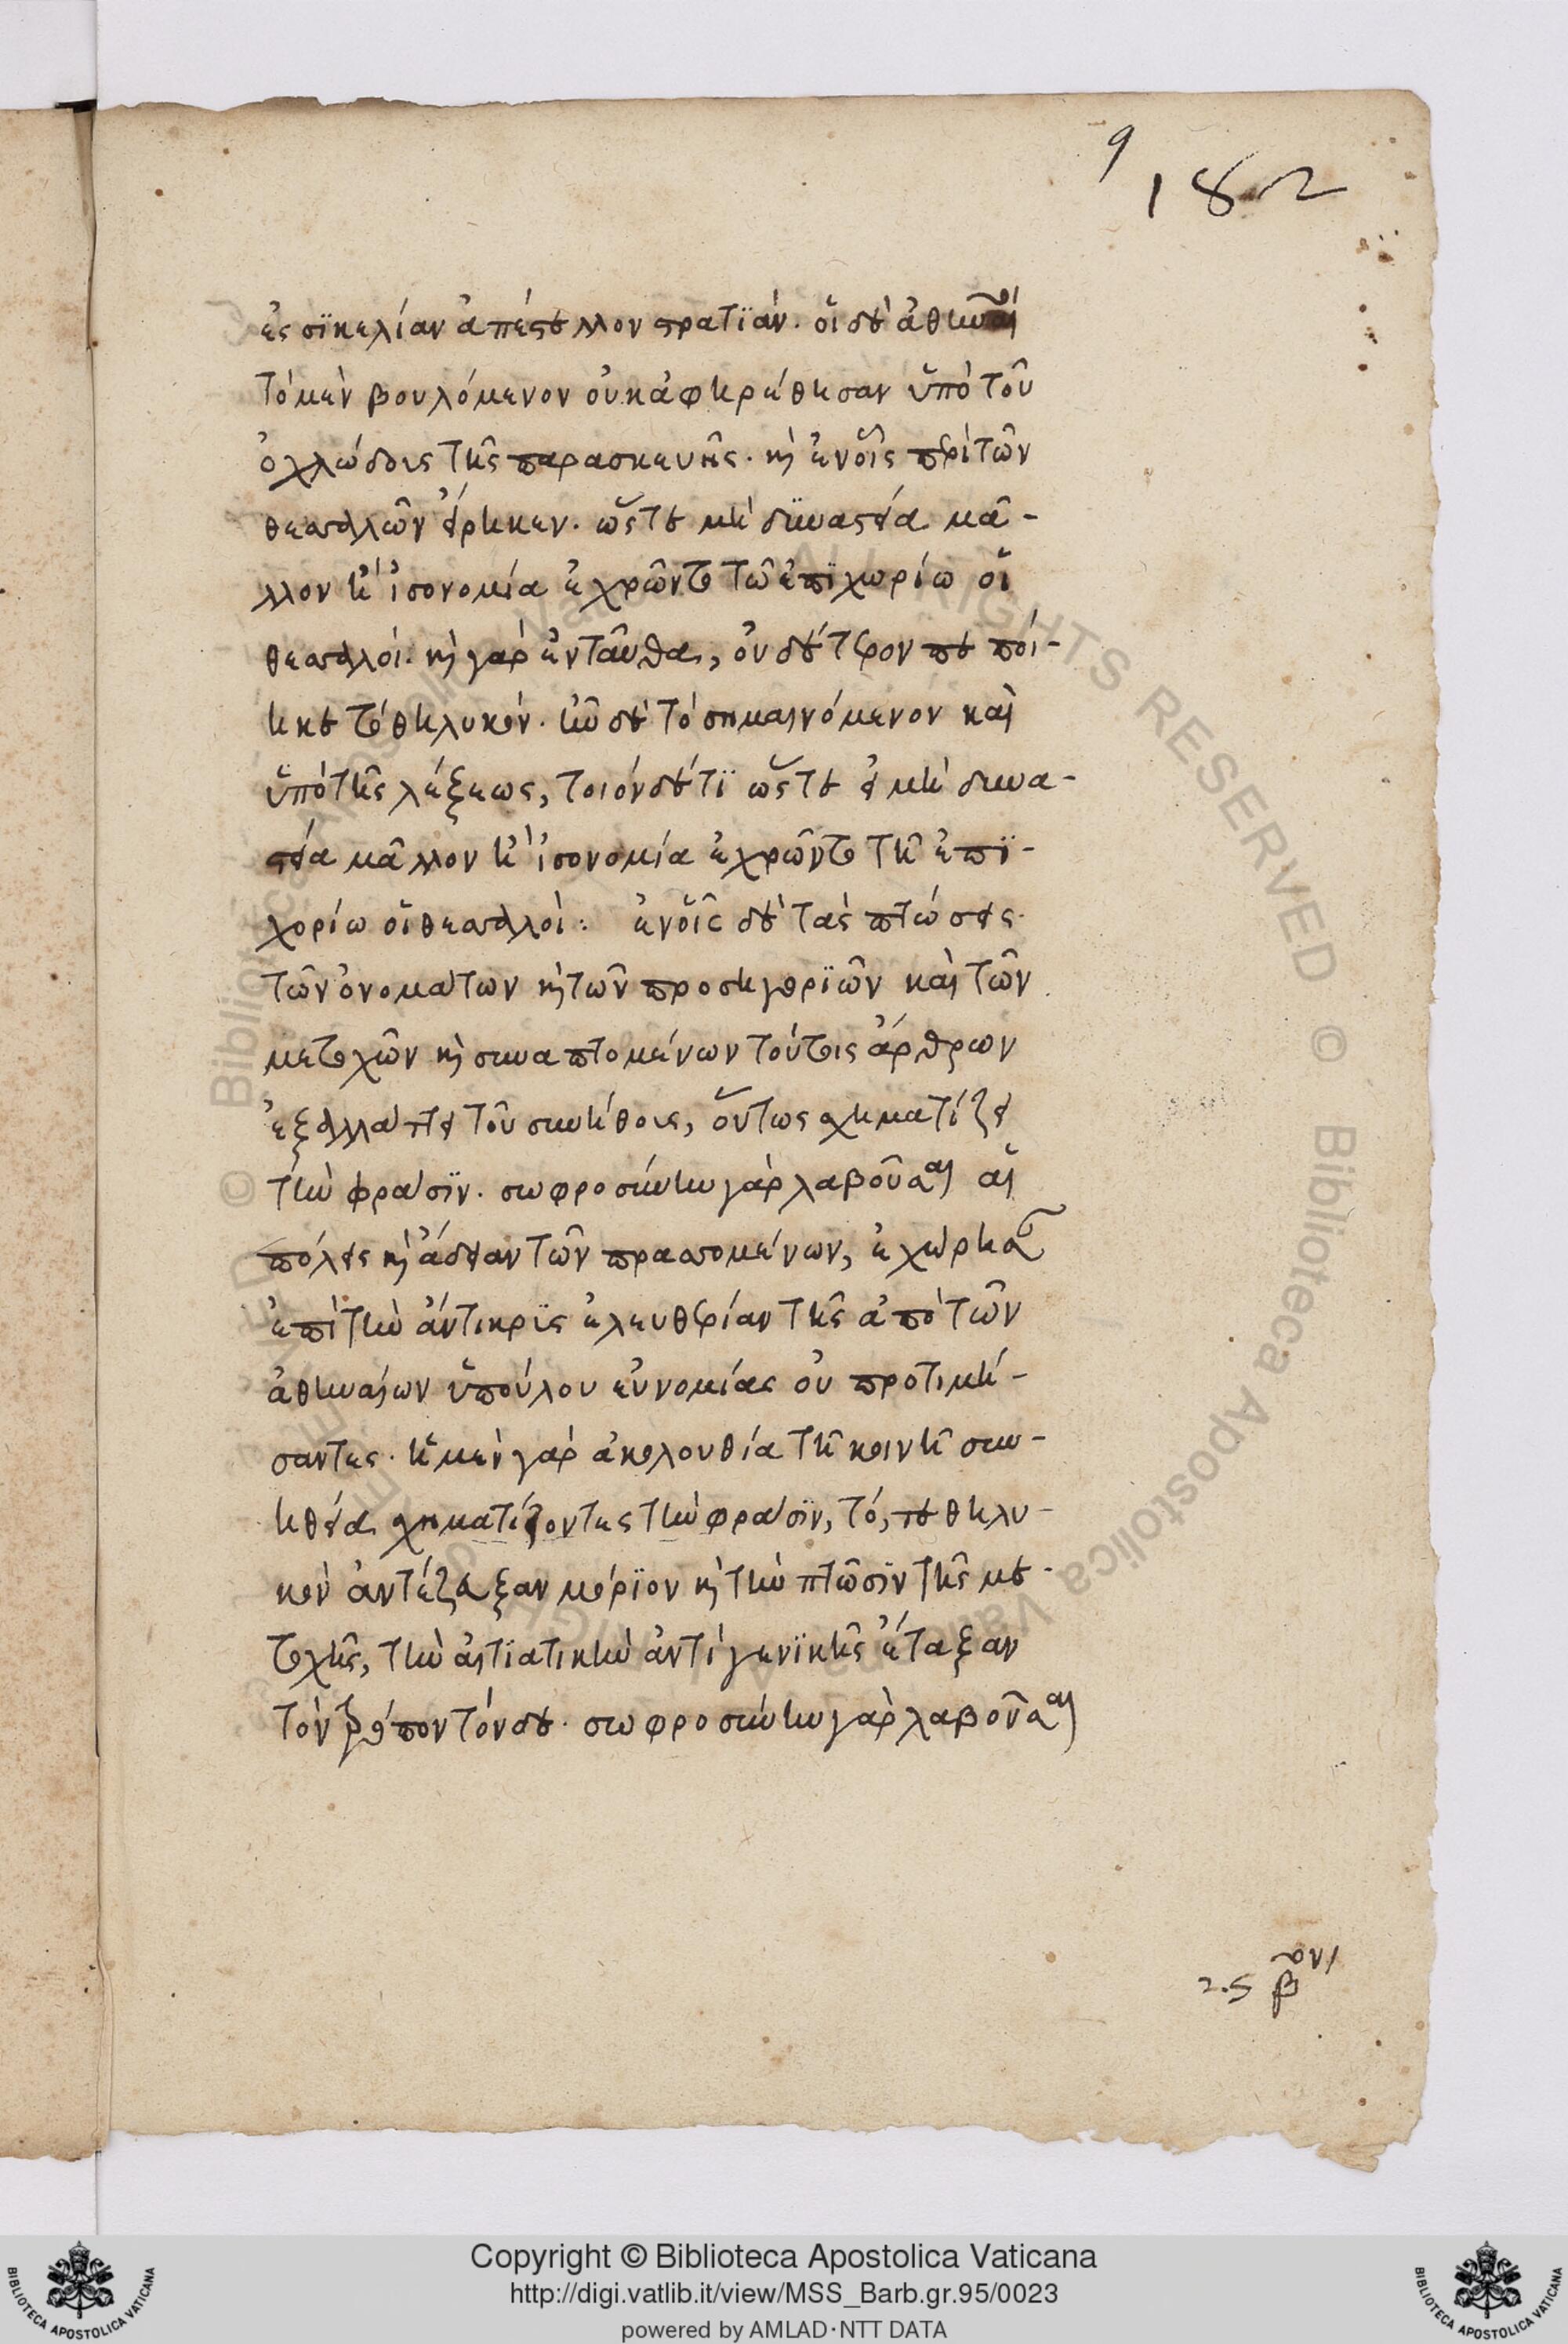 9
182
ἐς σϊκελίαν ἀπέστελλον στρατϊάν. οἵ δὲ ἀθηναῖοι
τὸ μὲν βουλόμενον οὐκ ἀφηρέθησαν ὕπὸ τοῦ
ὀχλώδους τῆς παρασκευῆς. καὶ ἐν οἷς περὶ τῶν
θεσσαλῶν εἴρηκεν. ὥστε μὴ δϋναστεία μᾶ-
λλον ἢ ἰσονομία ἐχρῶντο τῶ ἐπϊχωρίω οἵ
θεσσαλοί. καὶ γὰρ ἐνταῦθα, οὐδέτερον πεποί-
ηκε τὸ θηλυκόν. ἦν δὲ τὸ σημαινόμενον καὶ
ὕπὸ τῆς λέξεως, τοιόνδέ τϊ ὥστε εἰ μὴ δυνα-
στεία μᾶλλον ἢ ἰσονομία ἐχρῶντο τῆ ἐπϊ-
χορίω οἵ θεσσαλοὶ: ἐν οἷς δὲ τὰς πτώσεις
τῶν ὀνομάτων καὶ τῶν προσηγορϊῶν καὶ τῶν
μετοχῶν καὶ συναπτομένων τούτοις ἄρθρων
ἐξαλλάττει τοῦ συνήθους, οὕτως σχηματίζει
τὴν φράσϊν. σωφροσύνην γὰρ λαβοῦσαι αἵ
πόλεις καὶ ἄδειαν τῶν πρασσομένων, ἐχώρησαν
ἐπὶ τὴν ἄντικρϊς ἐλευθερίαν τῆς ἀπὸ τῶν
ἀθηναίων ὕπούλου εὐνομίας οὐ προτιμή-
σαντες. ἥ μὲν γὰρ ἀκολουθία τῆ κοινῆ συν-
ηθεία σχηματίζοντες τὴν φράσϊν, τό, τε θηλυ-
κὸν ἀντέταξαν μόρϊον καὶ τὴν πτῶσϊν τῆς με-
τοχῆς, τὴν αἰτϊατικὴν ἀντὶ γενϊκῆς ἔταξαν
τὸν τρόπον τόνδε. σωφροσύνην γὰρ λαβοῦσαι
Copyright © Biblioteca Apostolica Vaticana
http://digi.vatlib.it/view/MSS_Barb.gr.95/0023
powered by AMLAD·NTT DATA